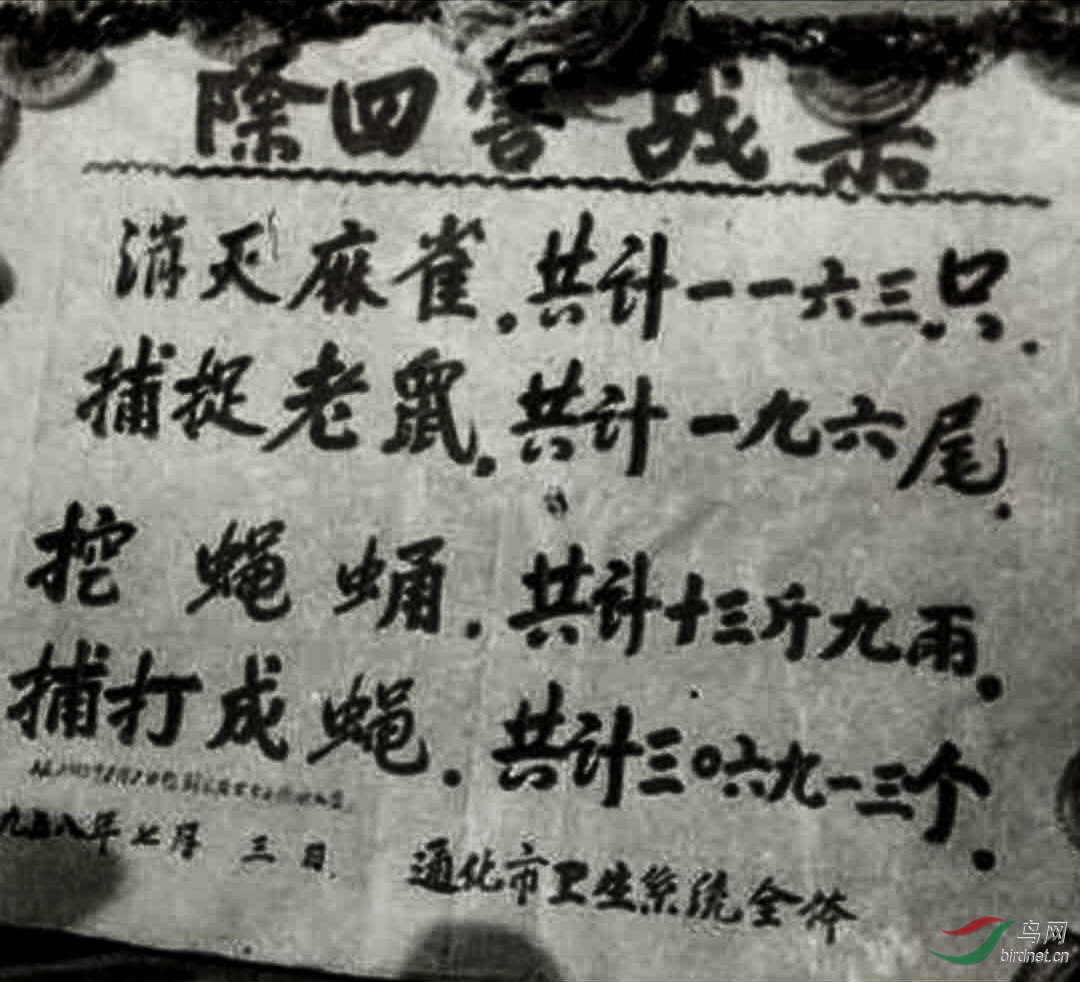 除四害战示
消灭麻雀.共计一一六三.只.
捕捉老鼠.共计一九六尾.
挖蝇蛹.共计十三斤九雨.
捕打成蝇.共计三〇六九一三个.
九五八年七月三日.
通化市卫生系统全体
鸟网
birdnet.cn